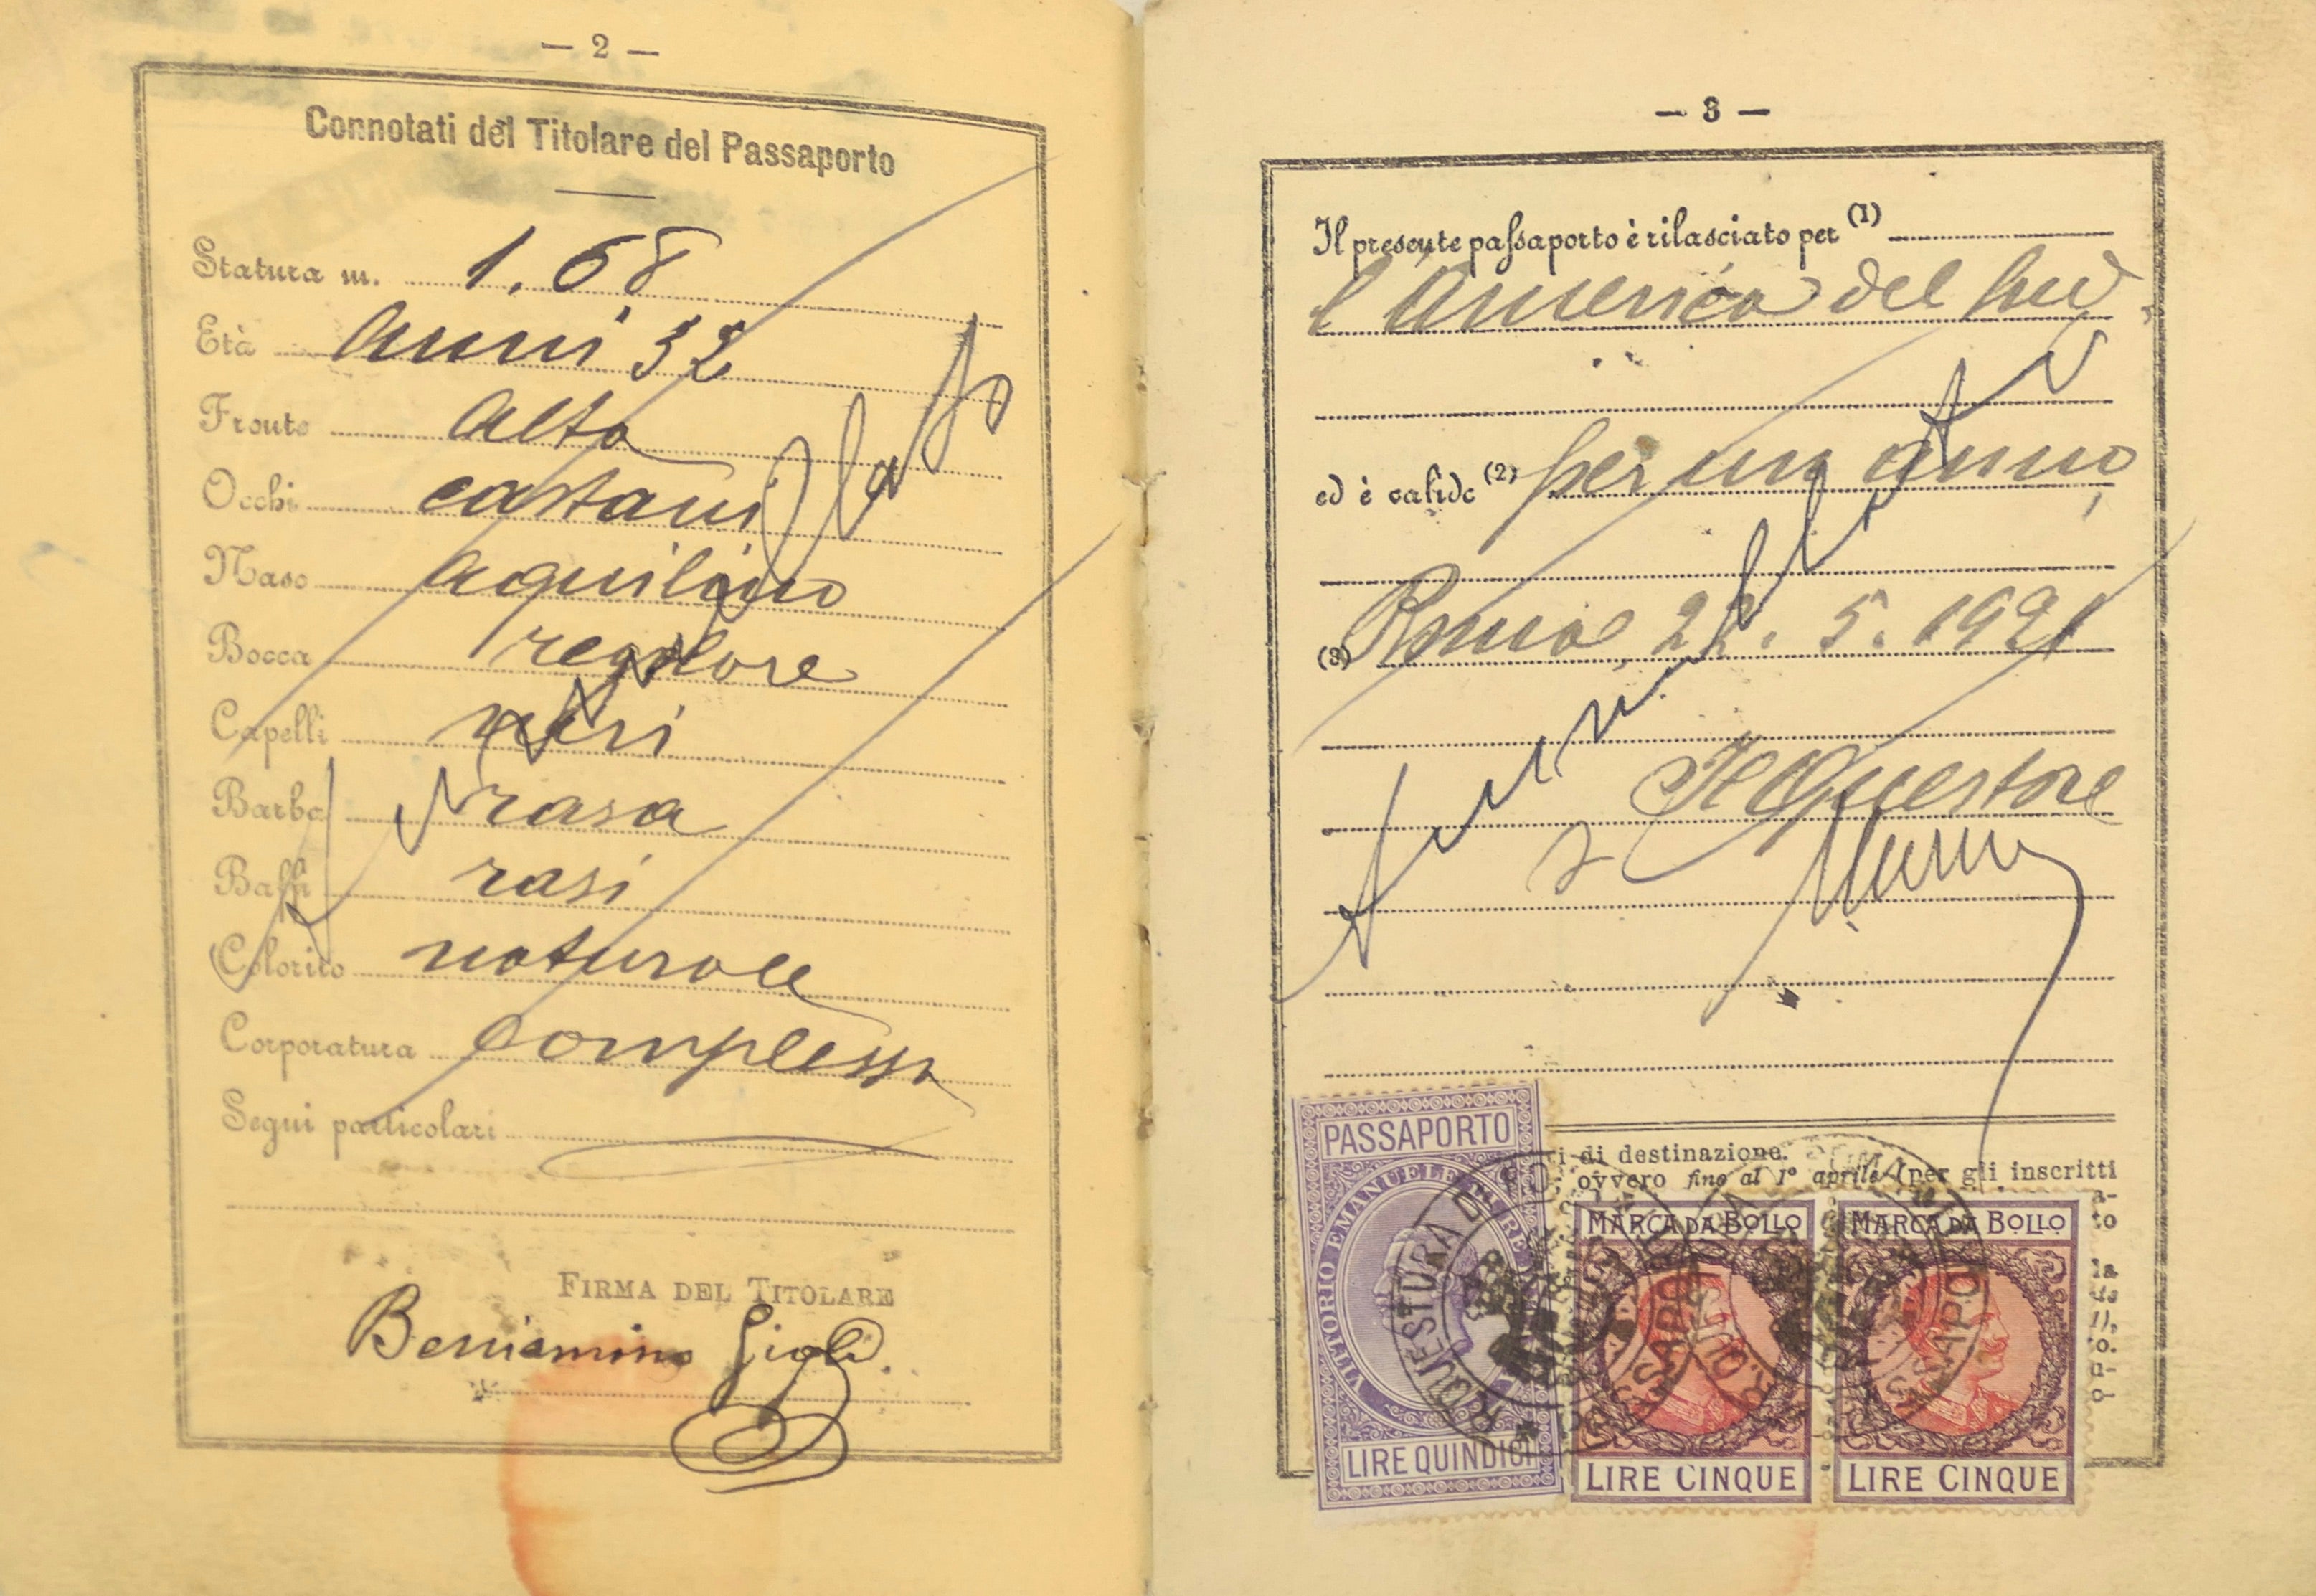 — 2 —
Connotati del Titolare del Passaporto
Statura m. 1.68
Età Anni 32
Fronte alta
Occhi castani
Naso aquilino
Bocca regolare
Capelli neri
Barba rasa
Baffi rasi
Colorito naturale
Corporatura complessa
Segni particolari
Annullato
FIRMA DEL TITOLARE
Beniamino Gigli
— 3 —
Il presente passaporto è rilasciato per (1)
l'America del Sud,
ed è valido (2) per un anno,
(3) Roma, 22. 5. 1921
Annullato
Il Questore
i di destinazione.
ovvero fino al 1° aprile (per gli inscritti
a-
to
la
de
11,
o.
n-
o-
PASSAPORTO
VITTORIO EMANUELE III RE
LIRE QUINDICI
MARCA DA BOLLO
LIRE CINQUE
MARCA DA BOLLO
LIRE CINQUE
R. QUESTURA DI ROMA
PASSAPORTI